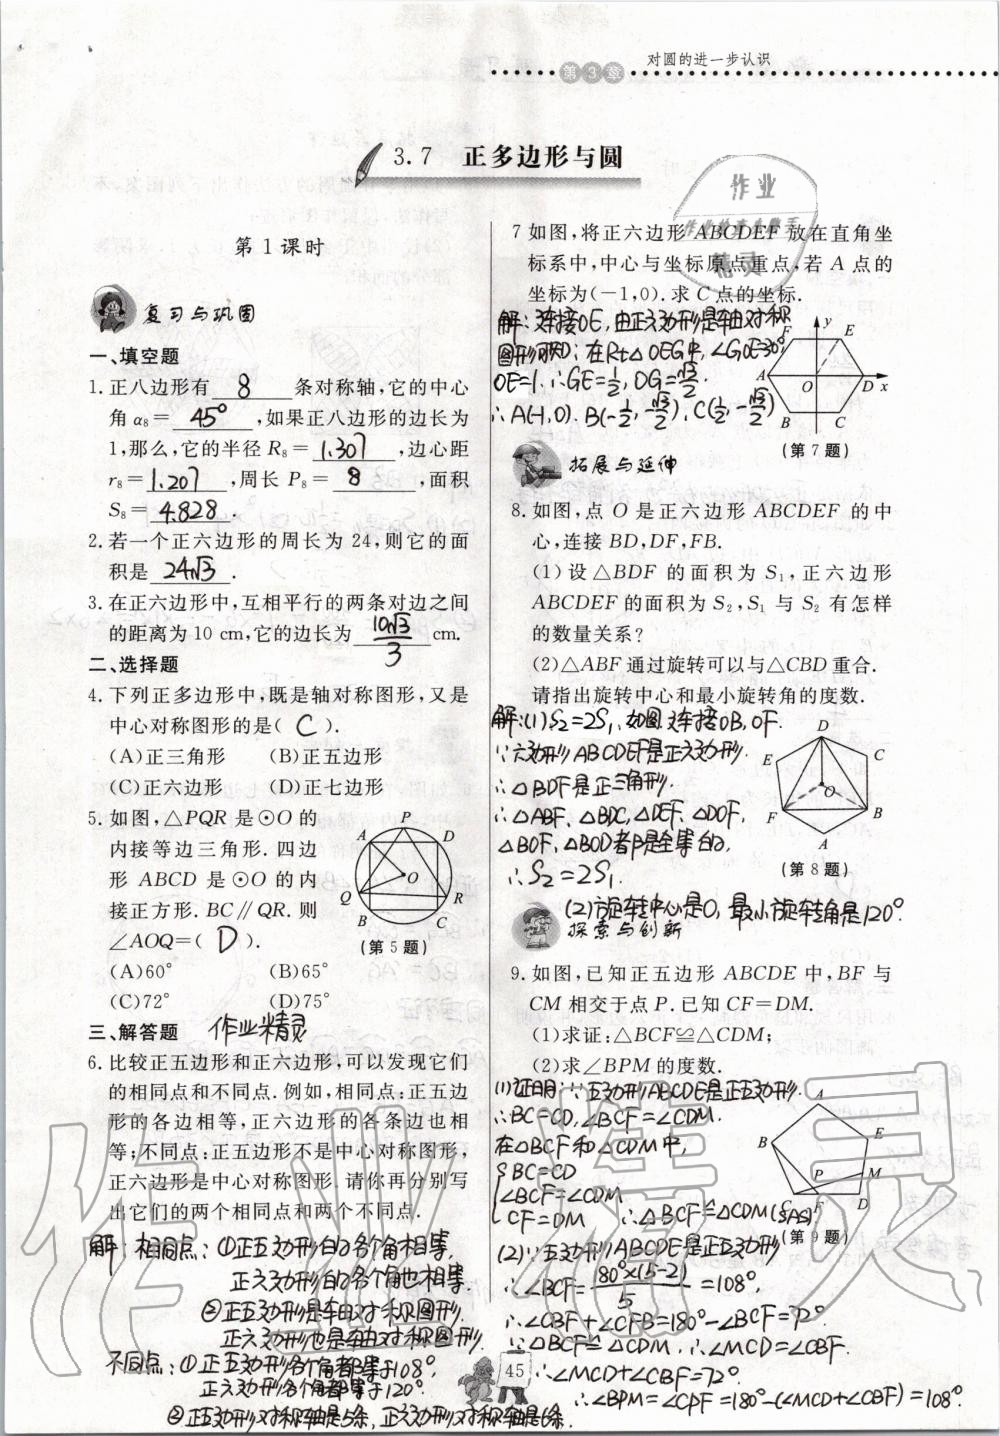 对圆的进一步认识
第3章
3.7 正多边形与圆
作业
作业检查小助手
精灵
第1课时
复习与巩固
一、填空题
1.正八边形有 8 条对称轴,它的中心
角 α₈= 45° ,如果正八边形的边长为
1,那么,它的半径 R₈= 1.307 ,边心距
r₈= 1.207 ,周长 P₈= 8 ,面积
S₈= 4.828 .
2.若一个正六边形的周长为 24,则它的面
积是 24√3 .
3.在正六边形中,互相平行的两条对边之间
的距离为 10 cm,它的边长为 10√3/3 cm.
二、选择题
4.下列正多边形中,既是轴对称图形,又是
中心对称图形的是( C ).
(A)正三角形 (B)正五边形
(C)正六边形 (D)正七边形
5.如图,△PQR 是⊙O 的
内接等边三角形.四边
形 ABCD 是⊙O 的内
接正方形.BC∥QR.则
∠AOQ=( D ).
(A)60° (B)65°
(C)72° (D)75°
A P D
O
Q R
B C
(第5题)
三、解答题 作业精灵
6.比较正五边形和正六边形,可以发现它们
的相同点和不同点.例如,相同点:正五边
形的各边相等,正六边形的各条边也相
等;不同点:正五边形不是中心对称图形,
正六边形是中心对称图形.请你再分别写
出它们的两个相同点和两个不同点.
解:相同点:①正五边形的各个角相等,
正六边形的各个角也相等.
②正五边形是轴对称图形,
正六边形也是轴对称图形.
不同点:①正五边形各个角都等于108°,
正六边形各个角都等于120°.
②正五边形对称轴是5条,正六边形对称轴是6条.
7 如图,将正六边形 ABCDEF 放在直角坐
标系中,中心与坐标原点重点,若 A 点的
坐标为(-1,0).求 C 点的坐标.
解:连接OE,由正六边形是轴对称
图形可知:在Rt△OEG中,∠GOE=30°,
OE=1.∴GE=1/2,OG=√3/2.
∴A(-1,0).B(-1/2,-√3/2),C(1/2,-√3/2)
F y E
A O D x
B C
(第7题)
拓展与延伸
8.如图,点 O 是正六边形 ABCDEF 的中
心,连接 BD,DF,FB.
(1)设△BDF 的面积为 S₁,正六边形
ABCDEF 的面积为 S₂,S₁ 与 S₂ 有怎样
的数量关系?
(2)△ABF 通过旋转可以与△CBD 重合.
请指出旋转中心和最小旋转角的度数.
解:(1)S₂=2S₁.如图.连接OB,OF.
∵六边形ABCDEF是正六边形.
∴△BDF是正三角形.
∴△ABF、△BDC、△DEF、△DOF,
△BOF、△BOD都是全等的,
∴S₂=2S₁.
(2)旋转中心是O,最小旋转角是120°.
D
E C
O
F B
A
(第8题)
探索与创新
9.如图,已知正五边形 ABCDE 中,BF 与
CM 相交于点 P.已知 CF=DM.
(1)求证:△BCF≌△CDM;
(2)求∠BPM 的度数.
(1)证明:∵五边形ABCDE是正五边形.
∴BC=CD,∠BCF=∠CDM.
在△BCF和△CDM中,
BC=CD
∠BCF=∠CDM
CF=DM ∴△BCF≌△CDM(SAS)
A
B E
P M
C F D
(第9题)
(2)∵五边形ABCDE是正五边形
∴∠BCF=180°×(5-2)/5=108°,
∴∠CBF+∠CFB=180°-∠BCF=72°
∵△BCF≌△CDM,∴∠MCD=∠CBF
∴∠MCD+∠CBF=72°.
∴∠BPM=∠CPF=180°-(∠MCD+∠CBF)=108°.
45
作业精灵